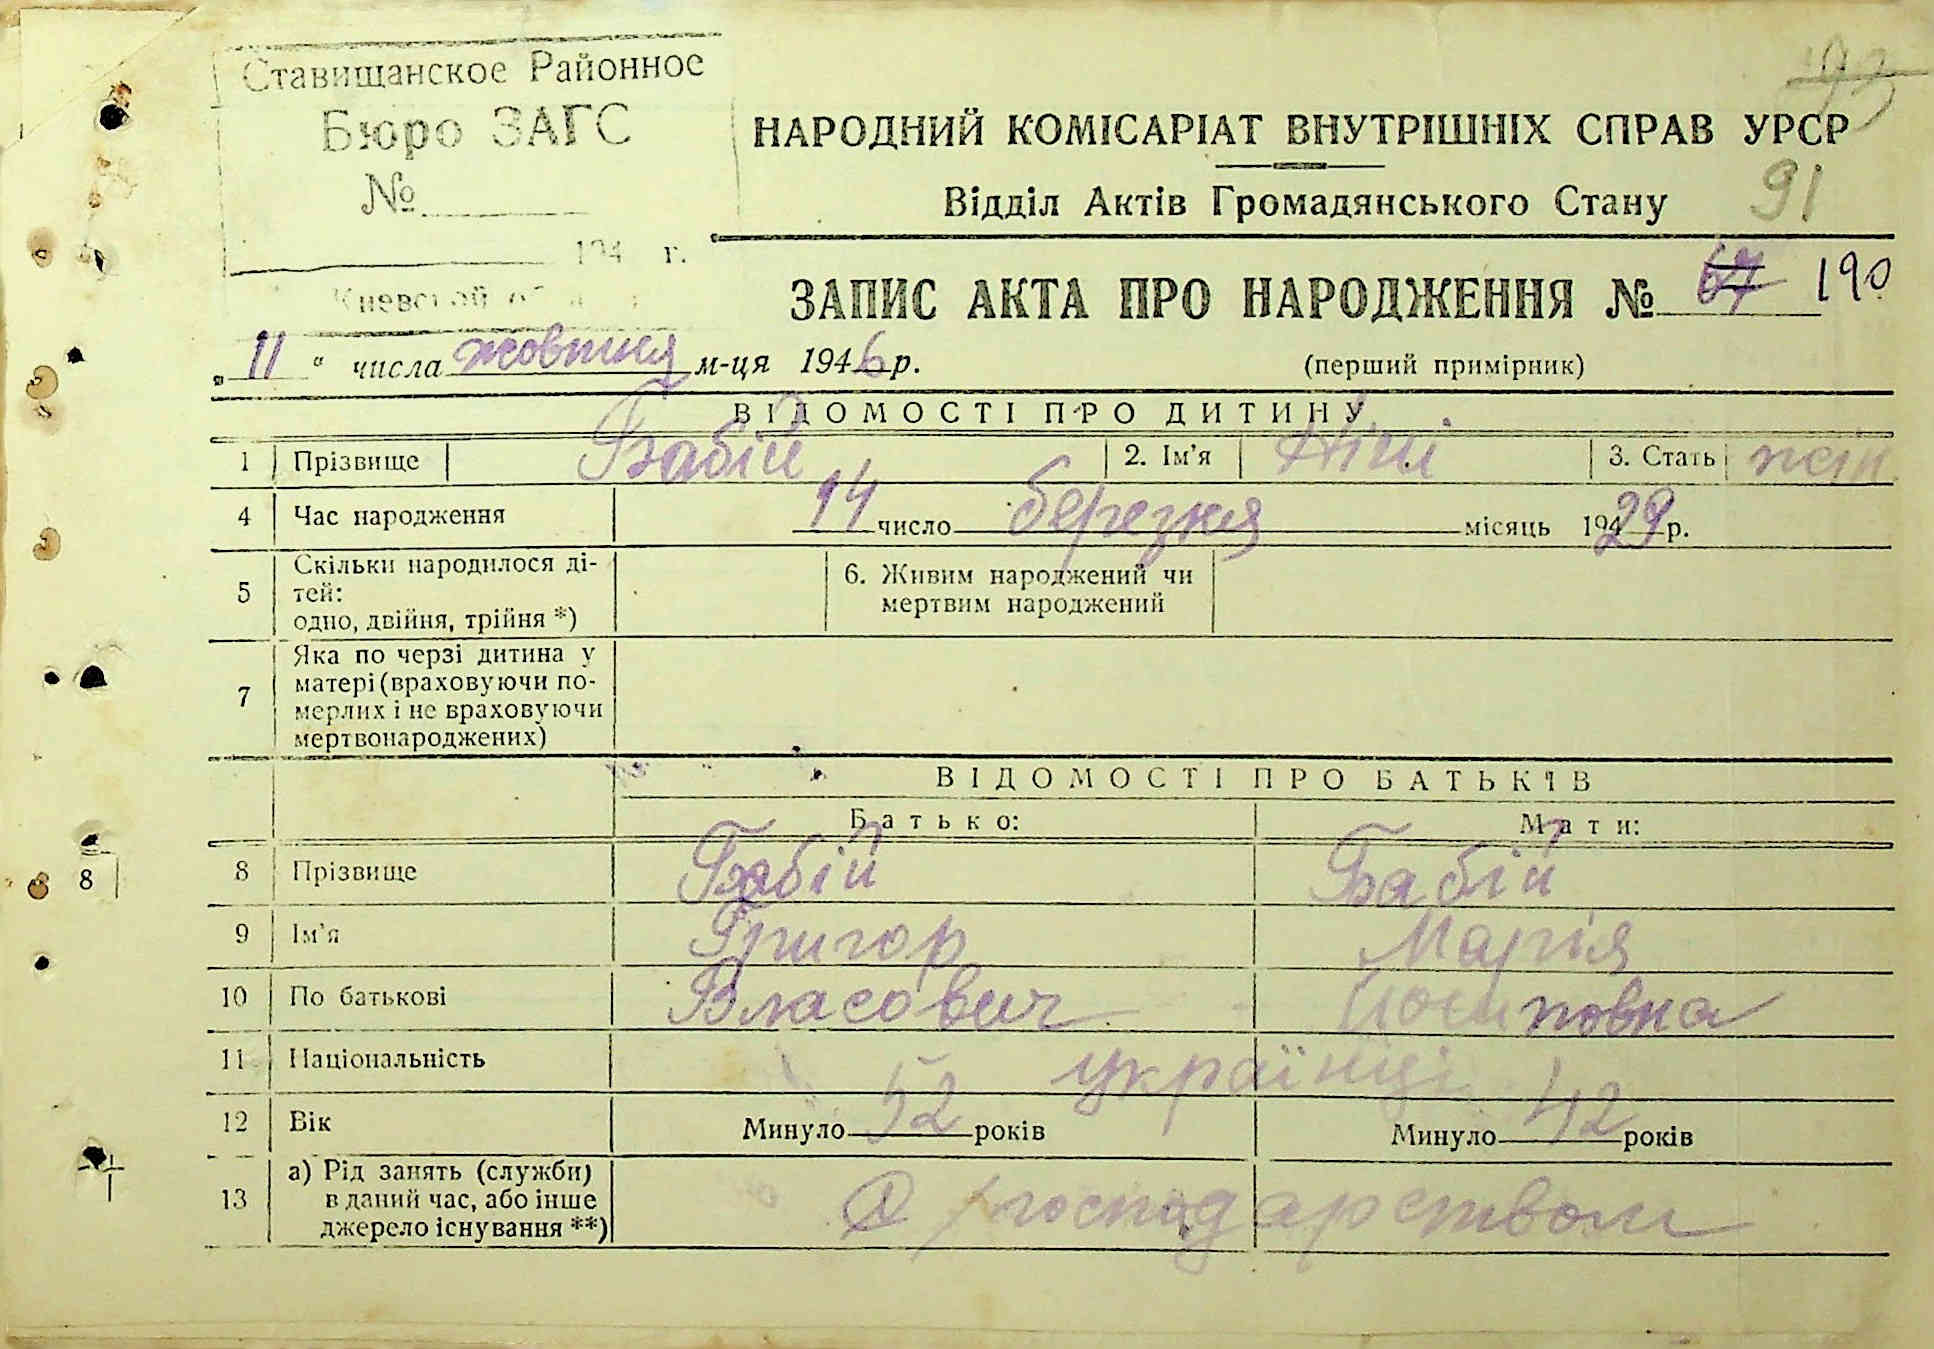 Ставищанское Районное
Бюро ЗАГС
№
194 г.
Киевской
93
НАРОДНИЙ КОМІСАРІАТ ВНУТРІШНІХ СПРАВ УРСР
Відділ Актів Громадянського Стану 91
ЗАПИС АКТА ПРО НАРОДЖЕННЯ № 67 190
„ 11 " числа жовтня м-ця 1946 р. (перший примірник)
ВІДОМОСТІ ПРО ДИТИНУ
1 Прізвище Бабій 2. Ім'я Ніні 3. Стать жін
4 Час народження 14 число березня місяць 1929 р.
5 Скільки народилося ді-
тей:
одно, двійня, трійня *)
6. Живим народжений чи
мертвим народжений
7 Яка по черзі дитина у
матері (враховуючи по-
мерлих і не враховуючи
мертвонароджених)
ВІДОМОСТІ ПРО БАТЬКІВ
Батько: Мати:
8 Прізвище Бабій Бабій
9 Ім'я Григор Марія
10 По батькові Власович Йосиповна
11 Національність українці
12 Вік Минуло 52 років Минуло 42 років
13 а) Рід занять (служби)
в даний час, або інше
джерело існування **)
господарством
8